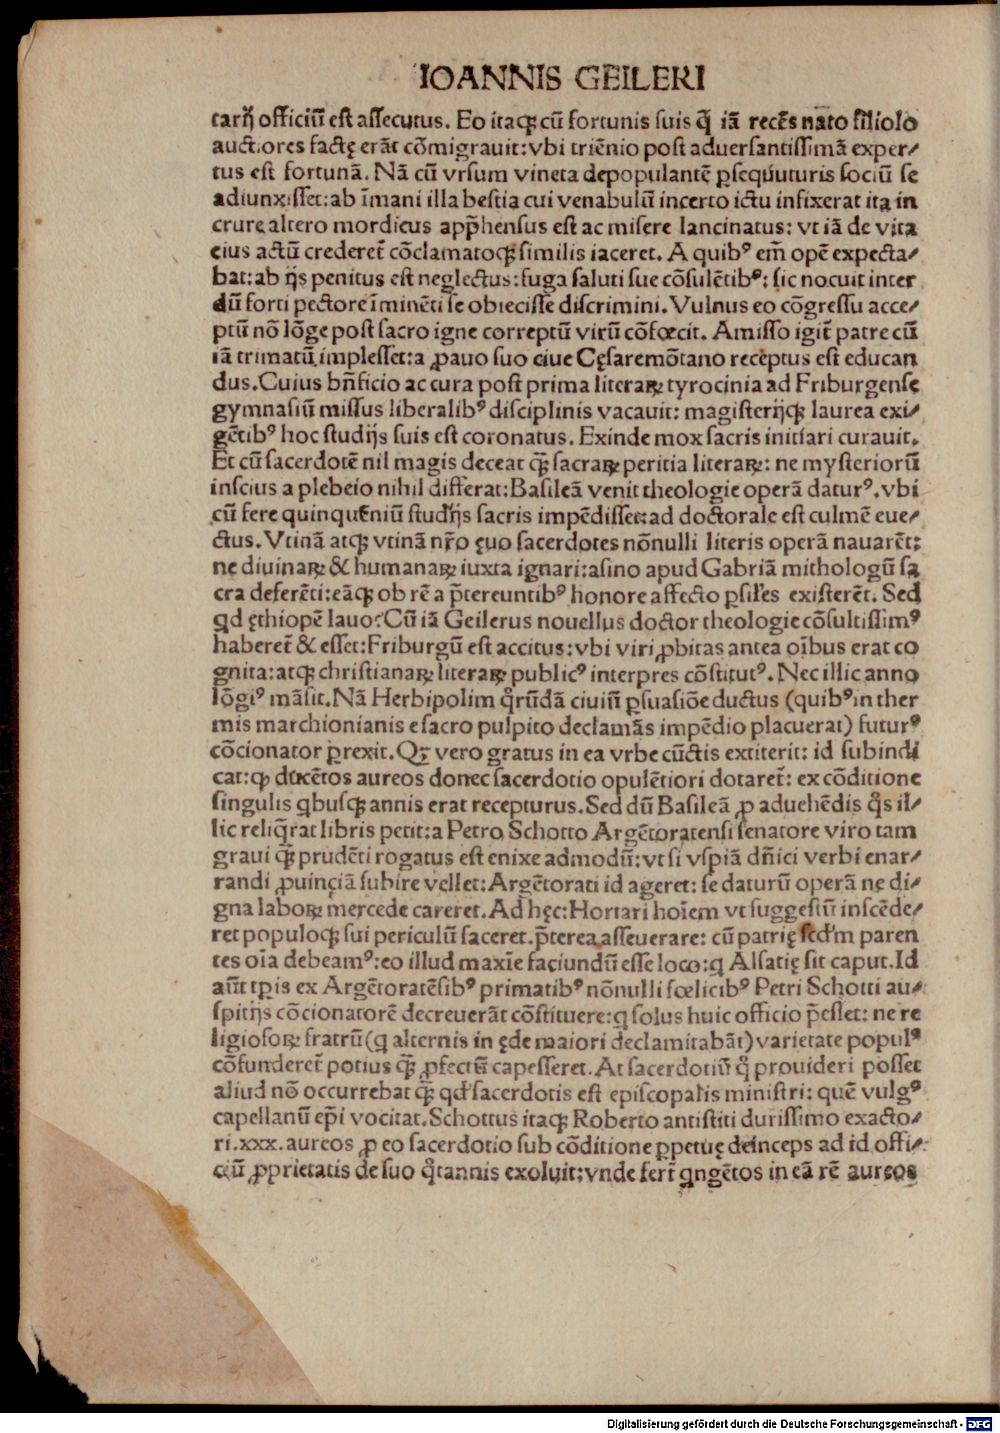 IOANNIS GEILERI
tarij officiū est assecutus. Eo itaqꝫ cū fortunis suis q̄ iā recēs nato filiolo
auctiores factę erāt cōmigrauit: vbi triēnio post aduersantissimā exper⸗
tus est fortunā. Nā cū vrsum vineta depopulantē ꝑsequuturis sociū se
adiunxisset: ab īmani illa bestia cui venabulū incerto ictu infixerat ita in
crure altero mordicus app̄hensus est ac misere lancinatus: vt iā de vita
eius actū crederet᷑ cōclamatoqꝫ similis iaceret. A quibꝰ em̄ opē expecta⸗
bat: ab ijs penitus est neglectus: fuga saluti sue cōsulētibꝰ: sic nocuit inter
dū forti pectore īminēti se obiecisse discrimini. Vulnus eo cōgressu acce⸗
ptū nō lōge post sacro igne correptū virū cōfœcit. Amisso igit᷑ patre cū
iā trimatū implesset: a ꝓauo suo ciue Cęsaremōtano receptus est educan
dus. Cuius bn̄ficio ac cura post prima literaꝝ tyrocinia ad Friburgense
gymnasiū missus liberalibꝰ disciplinis vacauit: magisterijqꝫ laurea exi⸗
gētibꝰ hoc studijs suis est coronatus. Exinde mox sacris initiari curauit.
Et cū sacerdotē nil magis deceat q̄ꝫ sacraꝝ peritia literaꝝ: ne mysteriorū
inscius a plebeio nihil differat: Basileā venit theologie operā daturꝰ. vbi
cū fere quinquēniū studijs sacris impēdisset: ad doctorale est culmē eue⸗
ctus. Vtinā atqꝫ vtinā nr̄o ęuo sacerdotes nōnulli literis operā nauarēt:
ne diuinaꝝ & humanaꝝ iuxta ignari: asino apud Gabriā mithologū sa
cra deferēti: eāqꝫ ob rē a p̄tereuntibꝰ honore affecto ꝑsiles existerēt. Sed
qd ęthiopē lauo? Cū iā Geilerus nouellus doctor theologie cōsultissimꝰ
haberet᷑ & esset: Friburgū est accitus: vbi viri ꝓbitas antea oībus erat co
gnita: atqꝫ christianaꝝ literaꝝ publicꝰ interpres cōstitutꝰ. Nec illic anno
lōgiꝰ māsit. Nā Herbipolim qͦrūdā ciuiū ꝑsuasiōe ductus (quibꝰ in ther
mis marchionianis e sacro pulpito declamās impēdio placuerat) futurꝰ
cōcionator ꝑrexit. Qꝫ vero gratus in ea vrbe cūctis extiterit: id subindi
cat: ꝙ ducētos aureos donec sacerdotio opulētiori dotaret᷑: ex cōditione
singulis qbusqꝫ annis erat recepturus. Sed dū Basileā ꝓ aduehēdis qͦs il⸗
lic reliqrat libris petit: a Petro Schotto Argētoratensi senatore viro tam
graui q̄ꝫ prudēti rogatus est enixe admodū: vt si vspiā dn̄ici verbi enar⸗
randi ꝓuinciā subire vellet: Argētorati id ageret: se daturū operā ne di⸗
gna laboꝝ mercede careret. Ad hęc: Hortari hoīem vt suggestū inscēde⸗
ret populoqꝫ sui periculū faceret. p̄terea asseuerare: cū patrię scd'm paren
tes oīa debeamꝰ: eo illud maxīe faciundū esse loco: q Alsatię sit caput. Id
aūt tꝑis ex Argētoratēsibꝰ primatibꝰ nōnulli fœlicibꝰ Petri Schotti au⸗
spitijs cōcionatorē decreuerāt cōstituere: q solus huic officio p̄esset: ne re
ligiosoꝝ fratrū (q alternis in ęde maiori declamitabāt) varietate populꝰ
cōfunderet᷑ potius q̄ꝫ ꝓfectū capesseret. At sacerdotiū qͦ prouideri posset
aliud nō occurrebat q̄ꝫ qd' sacerdotis est episcopalis ministri: quē vulgꝰ
capellanū ep̄i vocitat. Schottus itaqꝫ Roberto antistiti durissimo exacto⸗
ri .xxx. aureos ꝓ eo sacerdotio sub cōditione ꝑpetuę deinceps ad id offi⸗
ciū ꝓprietatis de suo qͦtannis exoluit: vnde fert᷑ qngētos in eā rē aureos
Digitalisierung gefördert durch die Deutsche Forschungsgemeinschaft - DFG